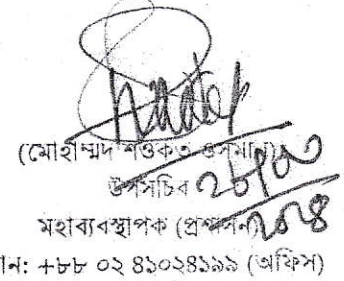 (মোহাম্মদ শওকত ওসমান)
উপসচিব
মহাব্যবস্থাপক (প্রশাসন)
ান: +৮৮ ০২ ৪১০২৪১৯৯ (অফিস)